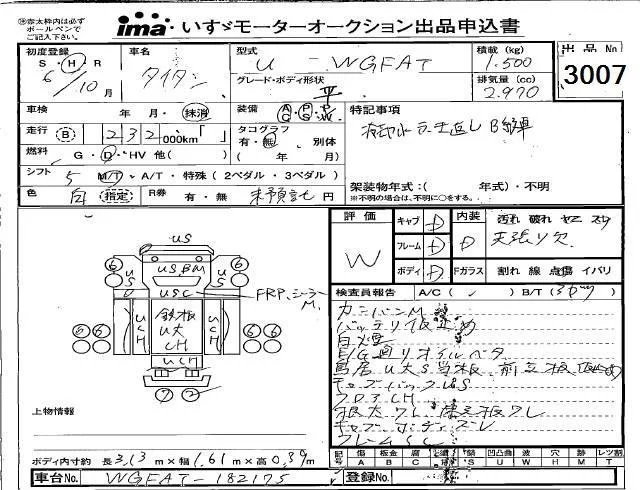 ※赤太枠内は必ず
ボールペンで
ご記入下さい。
ima いすゞモーターオークション出品申込書
初度登録
S・H・R
6／10月
車名
タイタン
型式
U－WGFAT
グレード・ボディ形状
平
積載(kg)
1.500
排気量(cc)
2.970
出品No
3007
車検 年・月・抹消
装備 A/C P/S P/W
特記事項
走行 B 232 000km「 」
タコグラフ
有・無 別体
( 年 月)
燃料 G・D・HV 他( )
シフト 5 M/T・A/T・特殊(2ペダル・3ペダル)
架装物年式:( 年式)・不明
※不明の場合は、不明に○をする。
色 白 指定 R券 有・無 未予預託 円
評価
W
キャブ D
フレーム D
ボディ D
内装 D
Fガラス
汚れ 破れ ヤニ スリ
天張り欠
割れ 線 点傷 イバリ
検査員報告 A/C( ) B/T( )
US
US BM
USC
US
US
D
FRP、シーラー
M、
UCH
UCH
鉄板
U大
CH
UCH
6 6 6 6 6 6
7 2
カンバンM
バッテリ仮止め
白煙
E/G廻りオイルベタ
鳥居U大S当板、前立板
キャブバックUS
フロアCH
キャブ ボディズレ
フレームSC
上物情報
ボディ内寸約 長3.13m×幅1.61m×高0.39m
記号 傷A 板金B 腐C 傷S 凹凸曲U 波W 穴H 跡M レツ割T
車台No. WGFAT－182175
登録No.